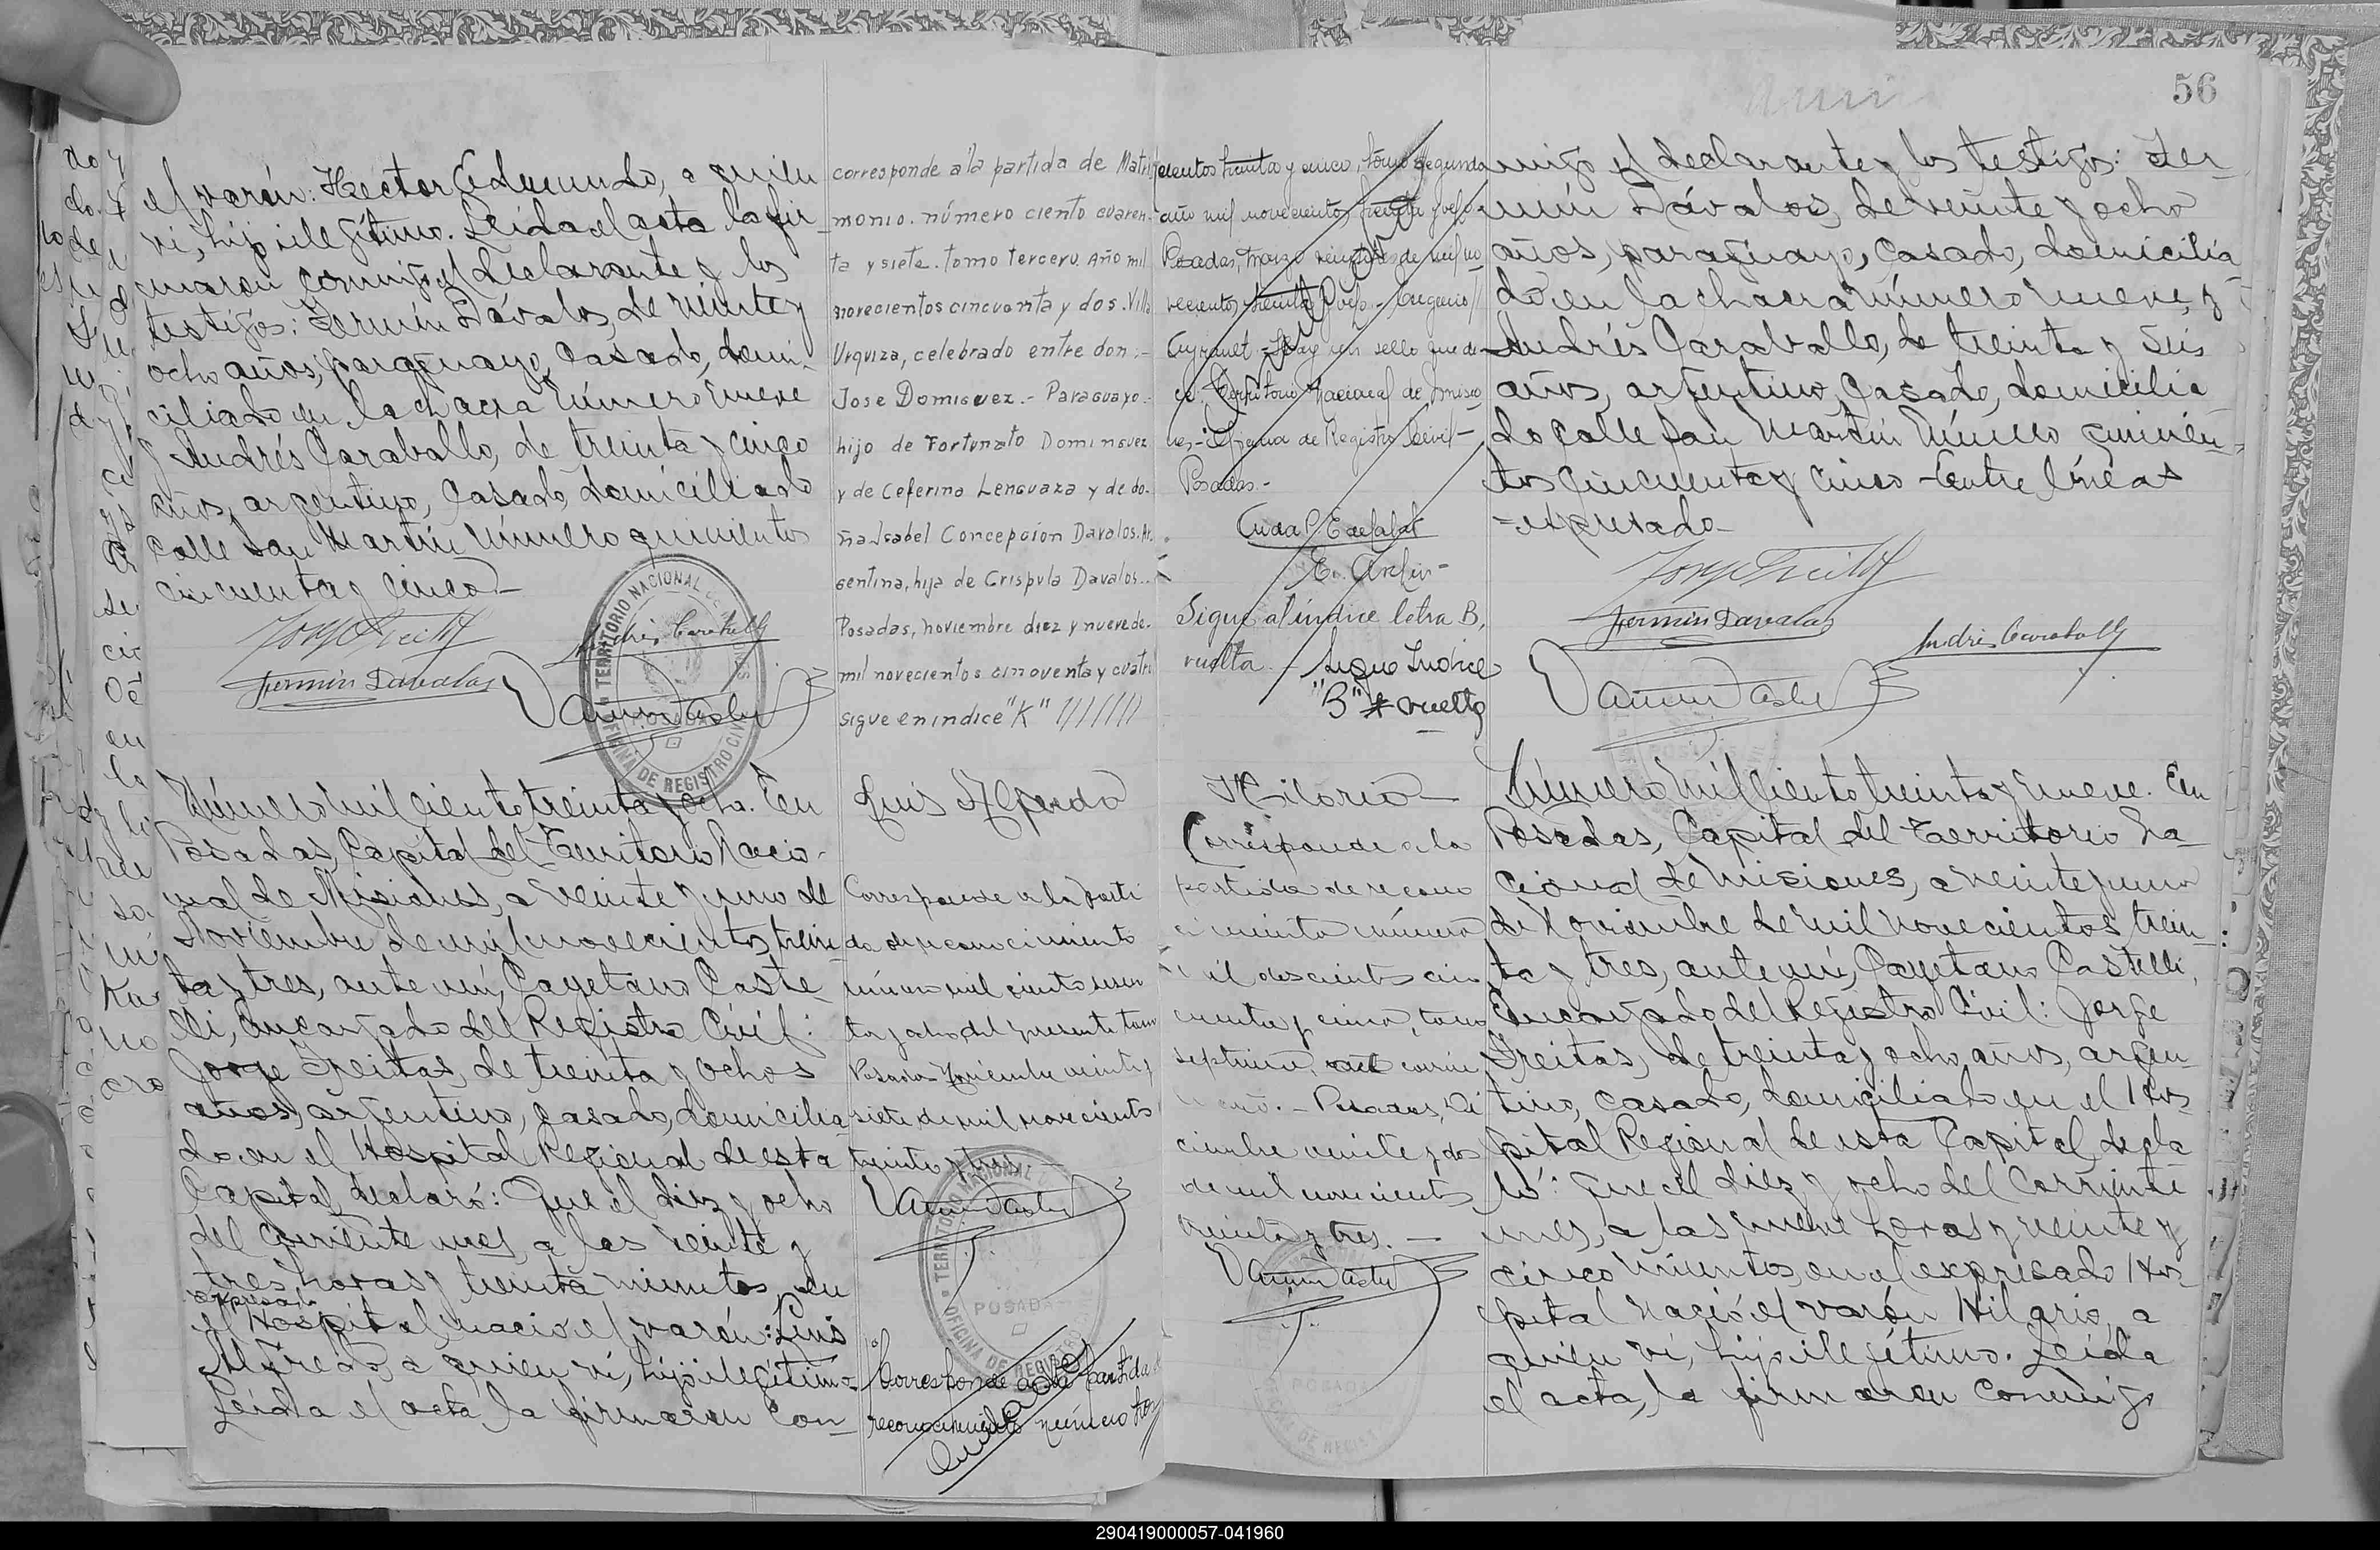 el varón: Héctor Edmundo, a quien
vi, hijo ilegítimo. Leída el acta la fir-
maron conmigo el declarante y los
testigos: Fermín Dávalos, de veinte y
ocho años, paraguayo, casado, domi-
ciliado en la chacra número nueve
y Andrés Caraballo, de treinta y cinco
años, argentino, casado, domiciliado
calle San Martín número quinientos
cincuenta y cinco-
Fermin Davalos
TERRITORIO NACIONAL DE MISIONES
OFICINA DE REGISTRO CIVIL
POSADAS
corresponde a la partida de Matri
monio. número ciento cuaren-
ta y siete. tomo tercero. Año mil
novecientos cincuenta y dos. Villa
Urquiza, celebrado entre don:-
Jose Dominguez.- Paraguayo.-
hijo de Fortunato Dominguez
y de Ceferina Lenguaza y de do-
ña Isabel Concepcíon Davalos. Ar.
gentina, hija de Crispula Davalos..
Posadas, noviembre diez y nueve de.
mil novecientos cincuenta y cuatro
sigue en indice "K" ///////
Número mil ciento treinta y ocho. En
Posadas, Capital del Territorio Nacio-
nal de Misiones, a veinte y uno de
Noviembre de mil novecientos trein-
ta y tres, ante mí, Cayetano Caste-
lli, Encargado del Registro Civil:
Jorge Freitas, de treinta y ochos
años, argentino, casado, domicilia-
do en el Hospital Regional de esta
Capital, declaró: Que el diez y ocho
del corriente mes, a las veinte y
tres horas y treinta minutos, en
expresado
el Hospital, nació el varón: Luis
Alfredo, a quien vi, hijo ilegítimo.
Leída el acta, la firmaron con-
Luis Alfredo
Corresponde a la parti
da de reconocimiento
número mil ciento sesen
ta y ocho del presente tomo
Posadas Noviembre veinte y
siete de mil novecientos
treinta y tres
TERRITORIO NACIONAL
POSADAS
OFICINA DE REGISTRO
Corresponde a la partida
reconocimiento número
cientos treinta y cinco, tomo segundo
año mil novecientos treinta y
Posadas, marzo veintitres de mil no
vecientos treinta y
Hay un sello que di
ce: Territorio Nacional de Misio
nes,- Oficina de Registro Civil-
Posadas.-
Sigue al índice letra B,
vuelta.- Sigue Indice
"B" vuelta
Hilario-
Corresponde a la
partida de recono
cimiento número
mil doscientos cin
cuenta y cinco, tomo
septimo, año corrien
Posadas, Di
ciembre veinte y dos
de mil novecientos
treinta y tres.-
POSADAS
56
migo el declarante y los testigos: Fer-
mín Dávalos, de veinte y ocho
años, paraguayo, casado, domicilia-
do en la chacra número nueve, y
Andrés Caraballo, de treinta y seis
años, argentino, casado, domicilia-
do calle San Martín número quinien-
tos cincuenta y cinco - Entre líneas
-expresado-
Fermin Davalos
Andrés Caraballo
Número mil ciento treinta y nueve. En
Posadas, Capital del Territorio Na-
cional de Misiones, a veinte y uno
de Noviembre de mil novecientos trein-
ta y tres, ante mí, Cayetano Castelli,
Encargado del Registro Civil: Jorge
Freitas, de treinta y ocho años, argen-
tino, casado, domiciliado en el Hos-
pital Regional de esta Capital, decla-
ró: Que el diez y ocho del corriente
mes, a las nueve horas y veinte y
cinco minutos, en el expresado Hos-
pital nació el varón Hilario, a
quien vi, hijo ilegítimo. Leída
el acta, la firmaron conmigo
290419000057-041960